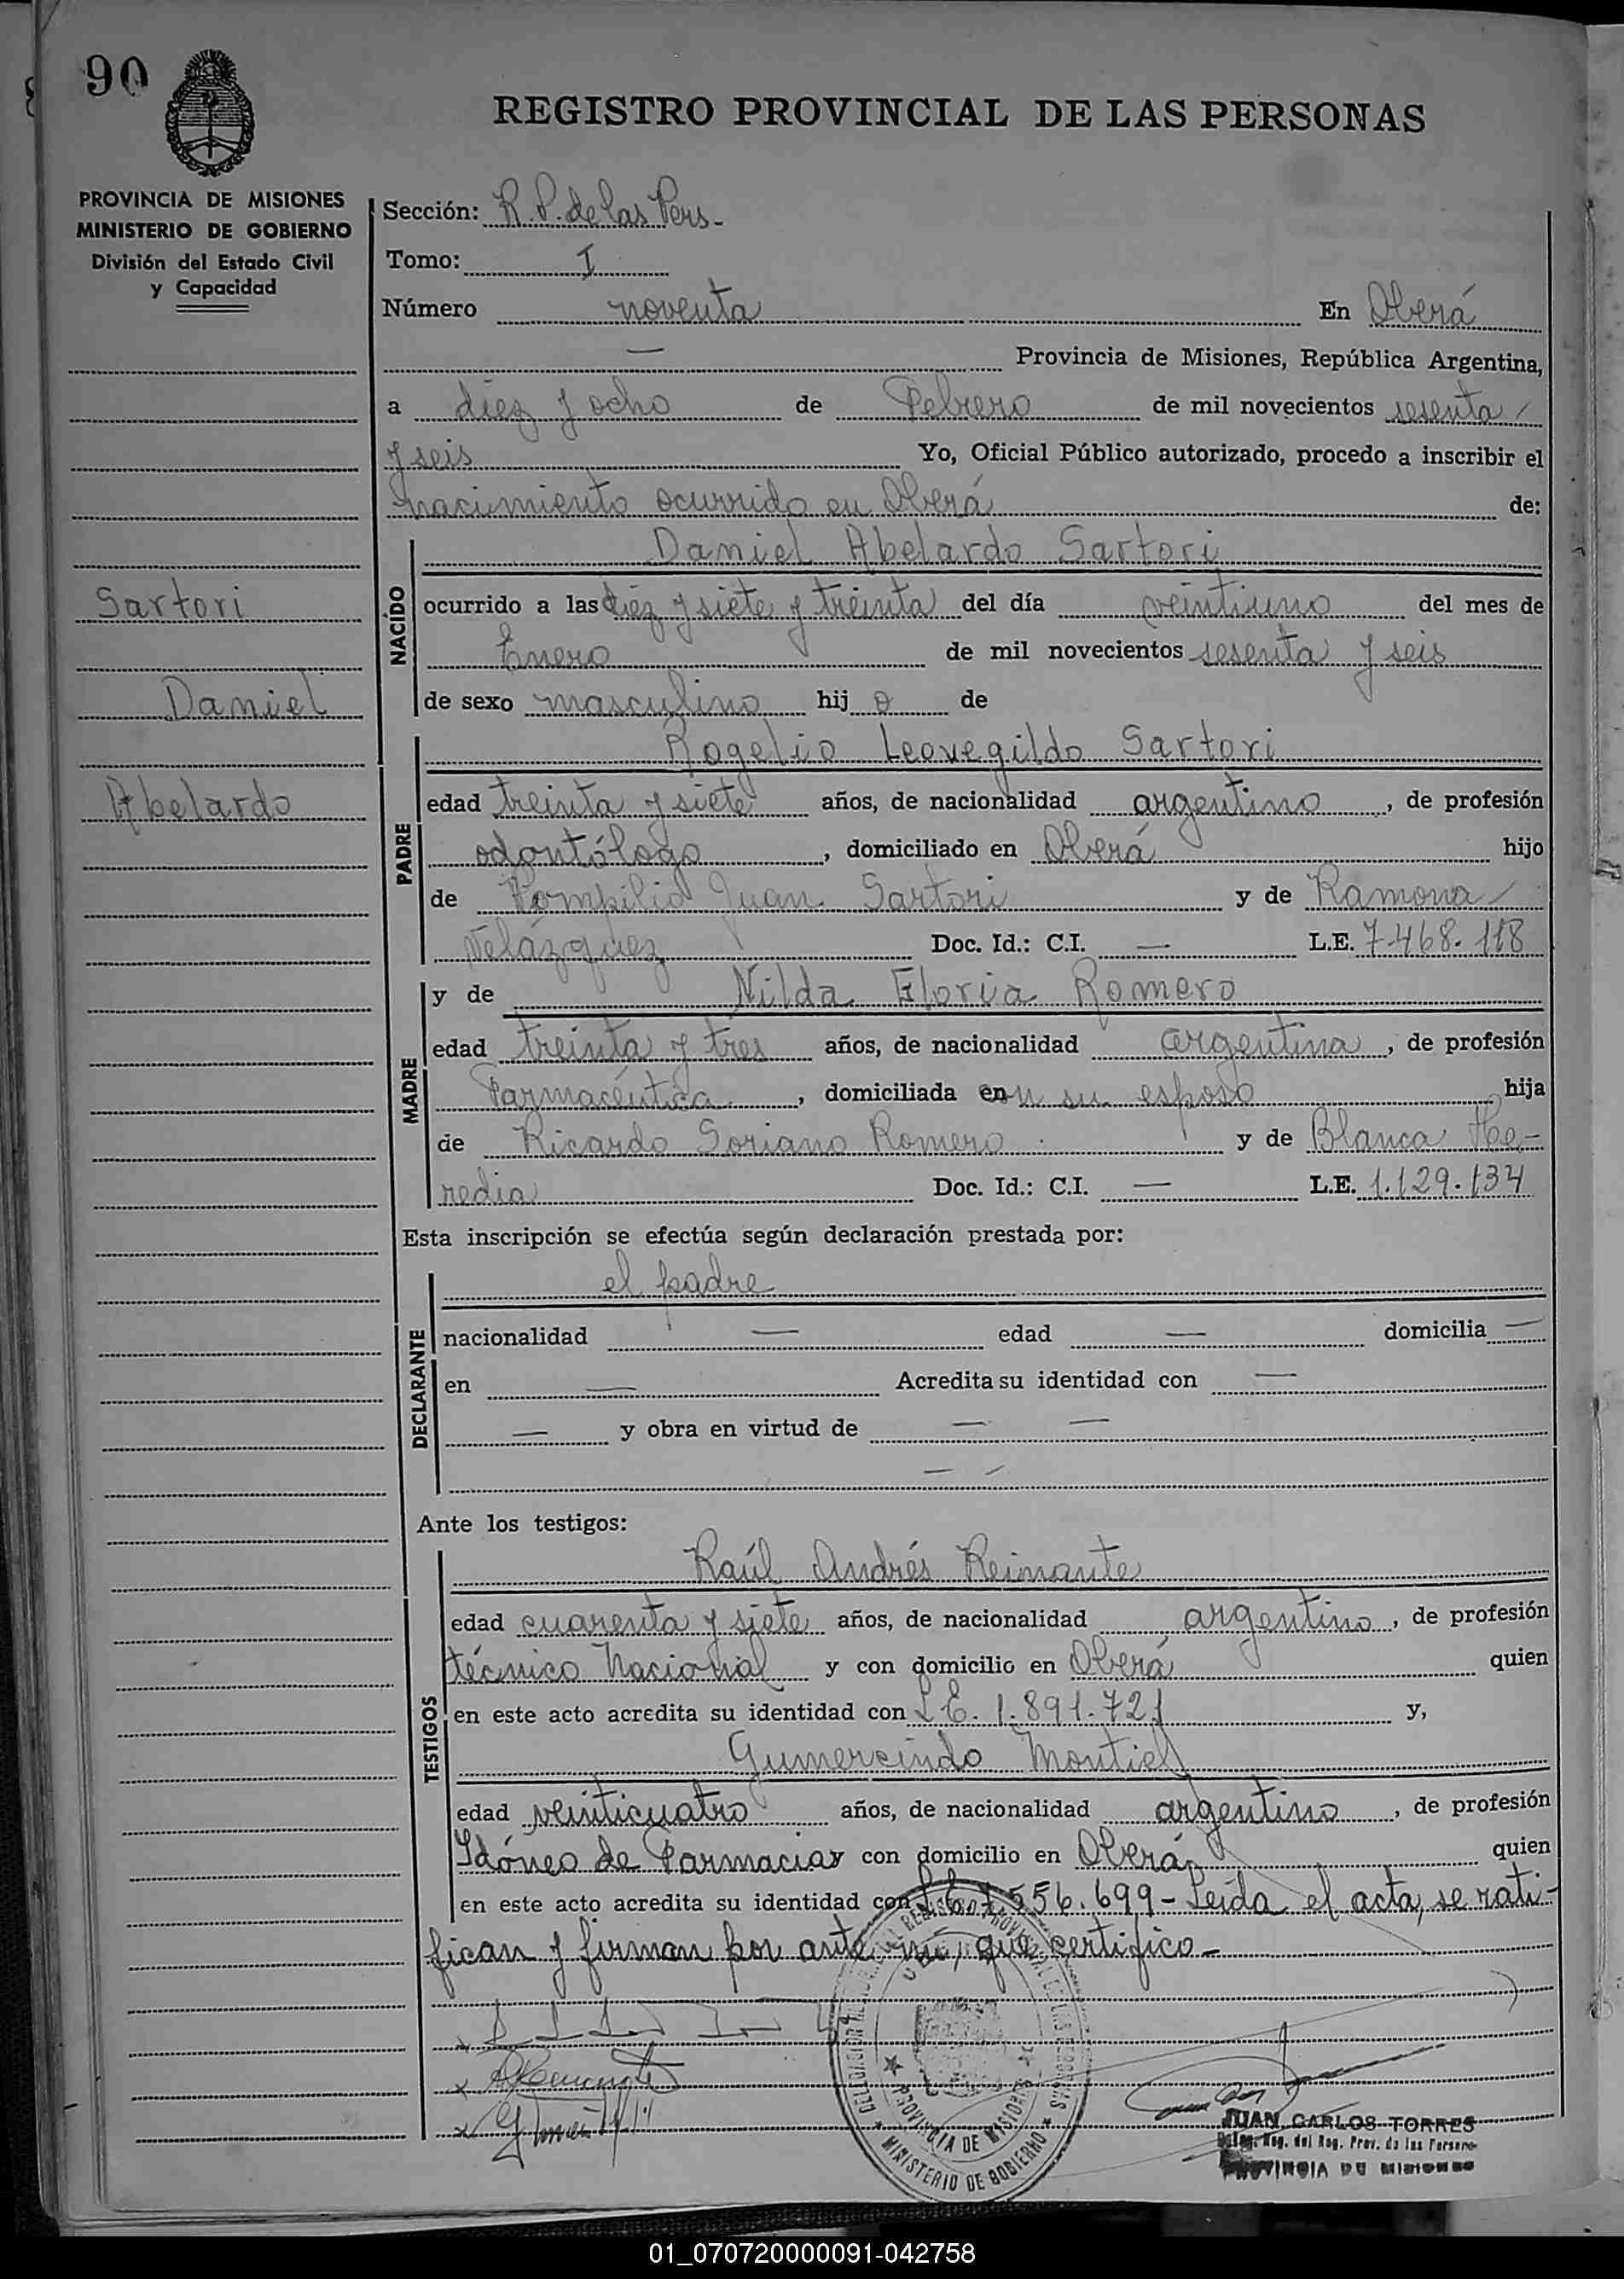 90
REGISTRO PROVINCIAL DE LAS PERSONAS
PROVINCIA DE MISIONES
MINISTERIO DE GOBIERNO
División del Estado Civil
y Capacidad
Sartori
Daniel
Abelardo
Sección: R. P. de las Pers.-
Tomo: I
Número noventa En Oberá
— Provincia de Misiones, República Argentina,
a diez y ocho de Febrero de mil novecientos sesenta
y seis Yo, Oficial Público autorizado, procedo a inscribir el
nacimiento ocurrido en Oberá de:
NACIDO
Daniel Abelardo Sartori
ocurrido a las diez y siete y treinta del día veintiuno del mes de
Enero de mil novecientos sesenta y seis
de sexo masculino hij o de
PADRE
Rogelio Leovegildo Sartori
edad treinta y siete años, de nacionalidad argentino, de profesión
odontólogo, domiciliado en Oberá hijo
de Pompilio Juan Sartori y de Ramona
Velázquez Doc. Id.: C.I. — L.E. 7.468.118
MADRE
y de Nilda Gloria Romero
edad treinta y tres años, de nacionalidad argentina, de profesión
Farmacéutica, domiciliada en su esposo hija
de Ricardo Soriano Romero y de Blanca He-
redia Doc. Id.: C.I. — L.E. 1.129.134
Esta inscripción se efectúa según declaración prestada por:
DECLARANTE
el padre
nacionalidad — edad — domicilia —
en — Acredita su identidad con —
— y obra en virtud de — —
— —
Ante los testigos:
TESTIGOS
Raúl Andrés Reimante
edad cuarenta y siete años, de nacionalidad argentino, de profesión
técnico Nacional y con domicilio en Oberá quien
en este acto acredita su identidad con L.E. 1.891.721 y,
Gumercindo Montiel
edad veinticuatro años, de nacionalidad argentino, de profesión
Idóneo de Farmacia y con domicilio en Oberá, quien
en este acto acredita su identidad con L.E. 7.556.699- Leída el acta, se rati-
fican y firman por ante mí, que certifico-
PROVINCIA DE MISIONES
MINISTERIO DE GOBIERNO
JUAN CARLOS TORRES
Deleg. Reg. del Reg. Prov. de las Persona
PROVINCIA DE MISIONES
01_070720000091-042758